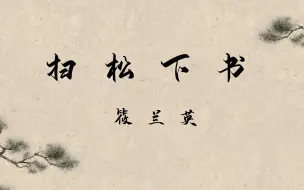 扫松下书
筱兰英